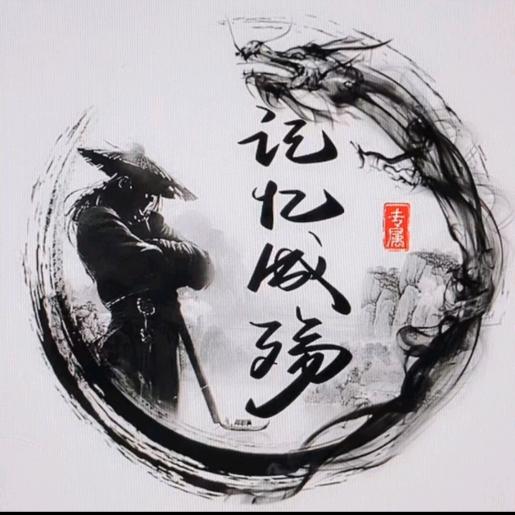 记忆成殇
专属